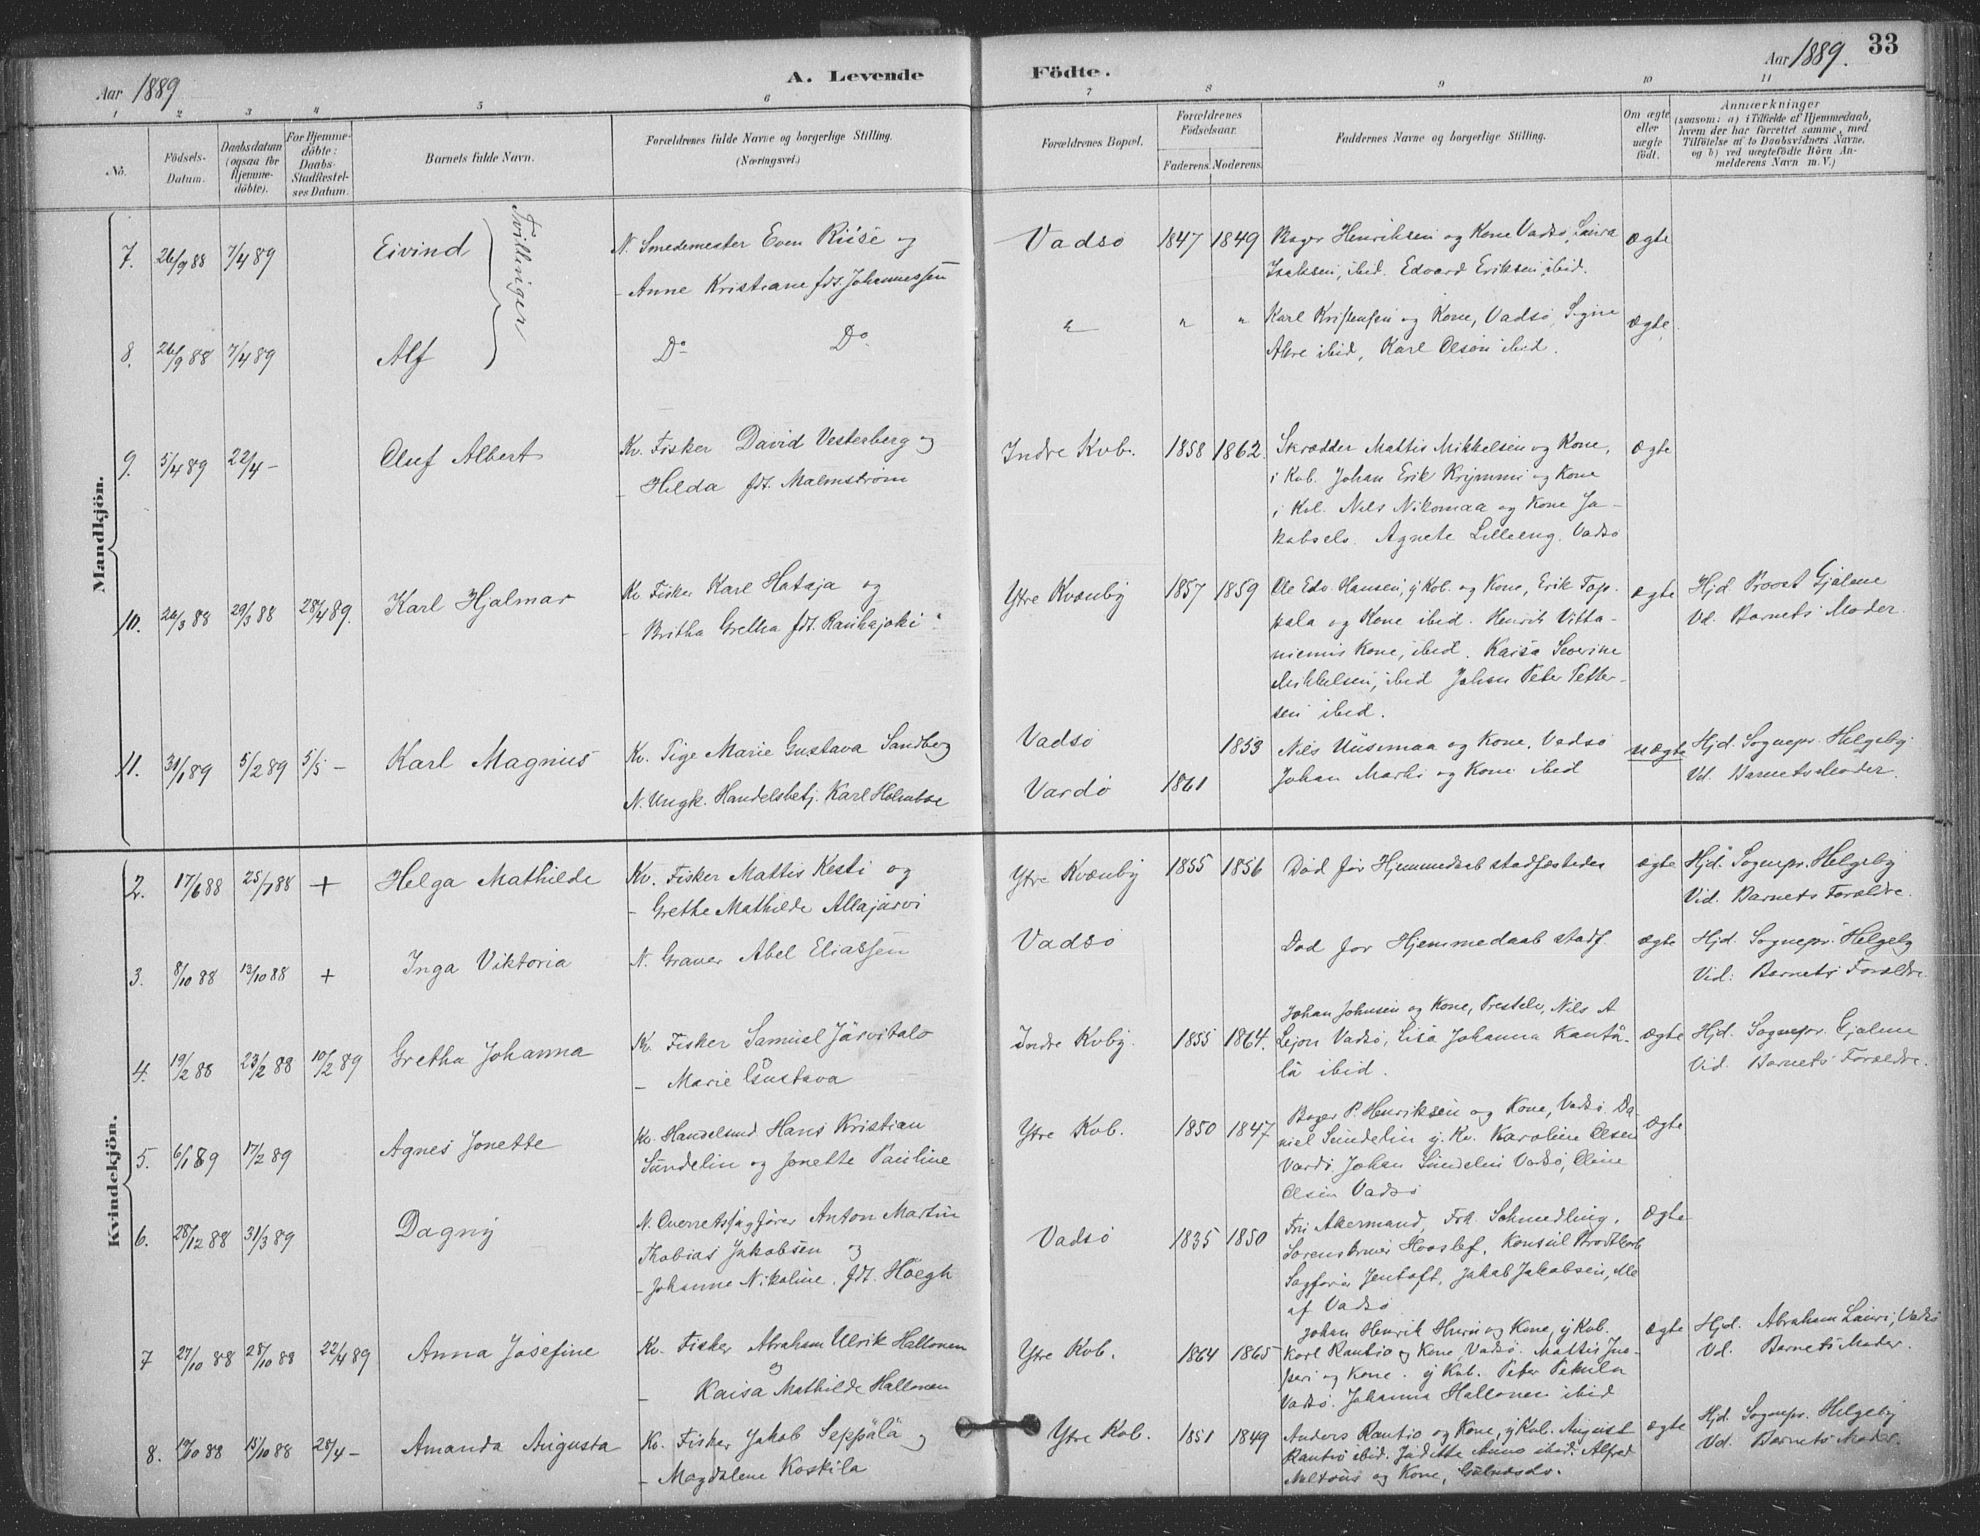 Aar 1889
A. Levende Födte.
Aar 1889.
33
1 2 3 4 5 6 7 8 9 10 11
No.
Födsels-Datum.
Daabsdatum (ogsaa for Hjemmedöbte).
For Hjemmedöbte: Daabs-Stadfæstelses Datum.
Barnets fulde Navn.
Forældrenes fulde Navne og borgerlige Stilling.
(Næringsvei.)
Forældrenes Bopæl.
Forældrenes Födselsaar.
Faderens. Moderens.
Faddernes Navne og borgerlige Stilling.
Om ægte eller uægte födt.
Anmærkninger
(saasom: a) i Tilfælde af Hjemmedaab,
hvem der har forrettet samme, med
Tilföielse af to Daabsvidners Navne,
og b) ved uægtefödte Börn Anmelderens Navn m. V.)
Mandkjön.
7. 26/9 88 7/4 89 Eivind
Tvillinger
N. Smedemester Even Riise og
- Anne Kristiane fdt. Johannessen
Vadsö 1847 1849
Bager Henriksen og Kone Vadsö, Laura
Isaksen, ibid. Edvard Eriksen, ibid.
ægte
8. 26/9 88 7/4 89 Alf
Do Do
" " "
Karl Kristensen og Kone, Vadsö, Signe
ibid, Karl Olsen ibid.
ægte
9. 5/4 89 22/4 - Oluf Albert
Kv. Fisker David Vesterberg og
- Hilda fdt. Malmström
Indre Kvb. 1858 1862.
Skrædder Mattis Mikkelsen og Kone,
i Kvb. Johan Erik Krymmi og Kone
i Kvb. Nils Nikomaa og Kone Ja-
kobselv. Agnete Lilleeng. Vadsö
ægte
10. 26/3 88 29/3 88 28/4 89. Karl Hjalmar
Kv. Fisker Karl Hataja og
- Britha Gretha fdt. Rauhajoki
Ytre Kvænby 1857 1859
Ole Edv. Hansen, y Kvb. og Kone, Erik Tap-
pala og Kone ibid. Henrik Vitta-
niemis Kone, ibid. Kaisa Severine
Mikkelsen, ibid Johan Peter Petter-
sen ibid.
ægte
Hjd. Provst Gjølme
Vd. Barnets Moder.
11. 31/1 89 5/2 89 5/5 - Karl Magnus
Kv. Pige Marie Gustava Sandberg
N. Ungk. Handelsbetj. Karl Holmboe
Vadsö 1853
Vardö 1861
Nils Uusimaa og Kone, Vadsö
Johan Marki og Kone ibid
uægte
Hjd. Sognepr. Helgeby
Vd. Barnets Moder.
Kvindekjön.
2. 17/6 88 25/7 88 + Helga Mathilde
Kv. Fisker Mattis Kesti og
- Grethe Mathilde Allajärvi
Ytre Kvænby 1855 1856
Död för Hjemmedaab stadfæstedes
ægte
Hjd. Sognepr. Helgeby
Vid. Barnets Forældre.
3. 8/10 88 13/10 88 + Inga Viktoria
N. Graver Abel Eliassen
Vadsö
Död för Hjemmedaab stadf.
ægte
Hjd. Sognepr. Helgeby
Vid. Barnets Forældre.
4. 19/2 88 23/2 88 10/2 89 Gretha Johanna
Kv. Fisker Samuel Järvitalo
og
- Marie Gustava
Indre Kvby. 1855 1864.
Johan Johnsen og Kone, Prestelv, Nils A
Lejon Vadsö, Lisa Johanna Kantä-
lä ibid.
ægte
Hjd. Sognepr. Gjølme
Vid. Barnets Forældre.
5. 6/1 89 17/2 89 Agnes Jonette
Kv. Handelsmd. Hans Kristian
Sundelin og Jonette Pauline
Ytre Kvb. 1850 1847
Bager P. Henriksen og Kone, Vadsö. Da-
niel Sundelin y. Kv. Karoline Olsen
Vardö. Johan Sundelin Vadsö, Oline
Olsen Vadsö
ægte
6. 28/12 88 31/3 89 Dagny
N. Overretssagförer Anton Martin
Tobias Jakobsen og
- Johanne Nikoline. fdt. Höegh
Vadsö 1835 1850
Fru Akermand, Frk. Schmedling,
Konsul Brodtkorb
Sagförer Jentoft, Jakob Jakobsen, Alle
af Vadsö
ægte
7 27/10 88 28/10 88 22/4 89 Anna Josefine
Kv. Fisker Abraham Ulrik Hallonen
og
- Kaisa Mathilde Hallonen
Ytre Kvb. 1864 1865
Johan Henrik og Kone, y Kvb.
Karl Rantio og Kone Vadsö. Mattis
og Kone. y Kvb. Peter Pekula
Vadsö. Johanna Hallonen ibid
ægte
Hjd. Abraham Lauri, Vadsö
Vd. Barnets Moder.
8. 88 15/10 88 28/4 - Amanda Augusta
Kv. Fisker Jakob Seppälä og
- Magdalene Koskila
Ytre Kvb. 1851 1849
Anders Rantio og Kone, y Kvb. August
Rantio ibid. Anna ibid. Alfred
og Kone,
ægte
Hjd. Sognepr. Helgeby
Vd. Barnets Moder.